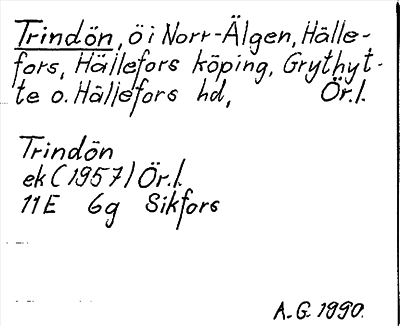 Trindön, ö i Norr-Älgen, Hälle-
fors, Hällefors köping, Grythyt-
te o. Hällefors hd, Ör.l.
Trindön
ek (1957) Ör.l.
11E 6g Sikfors
A.G. 1990.